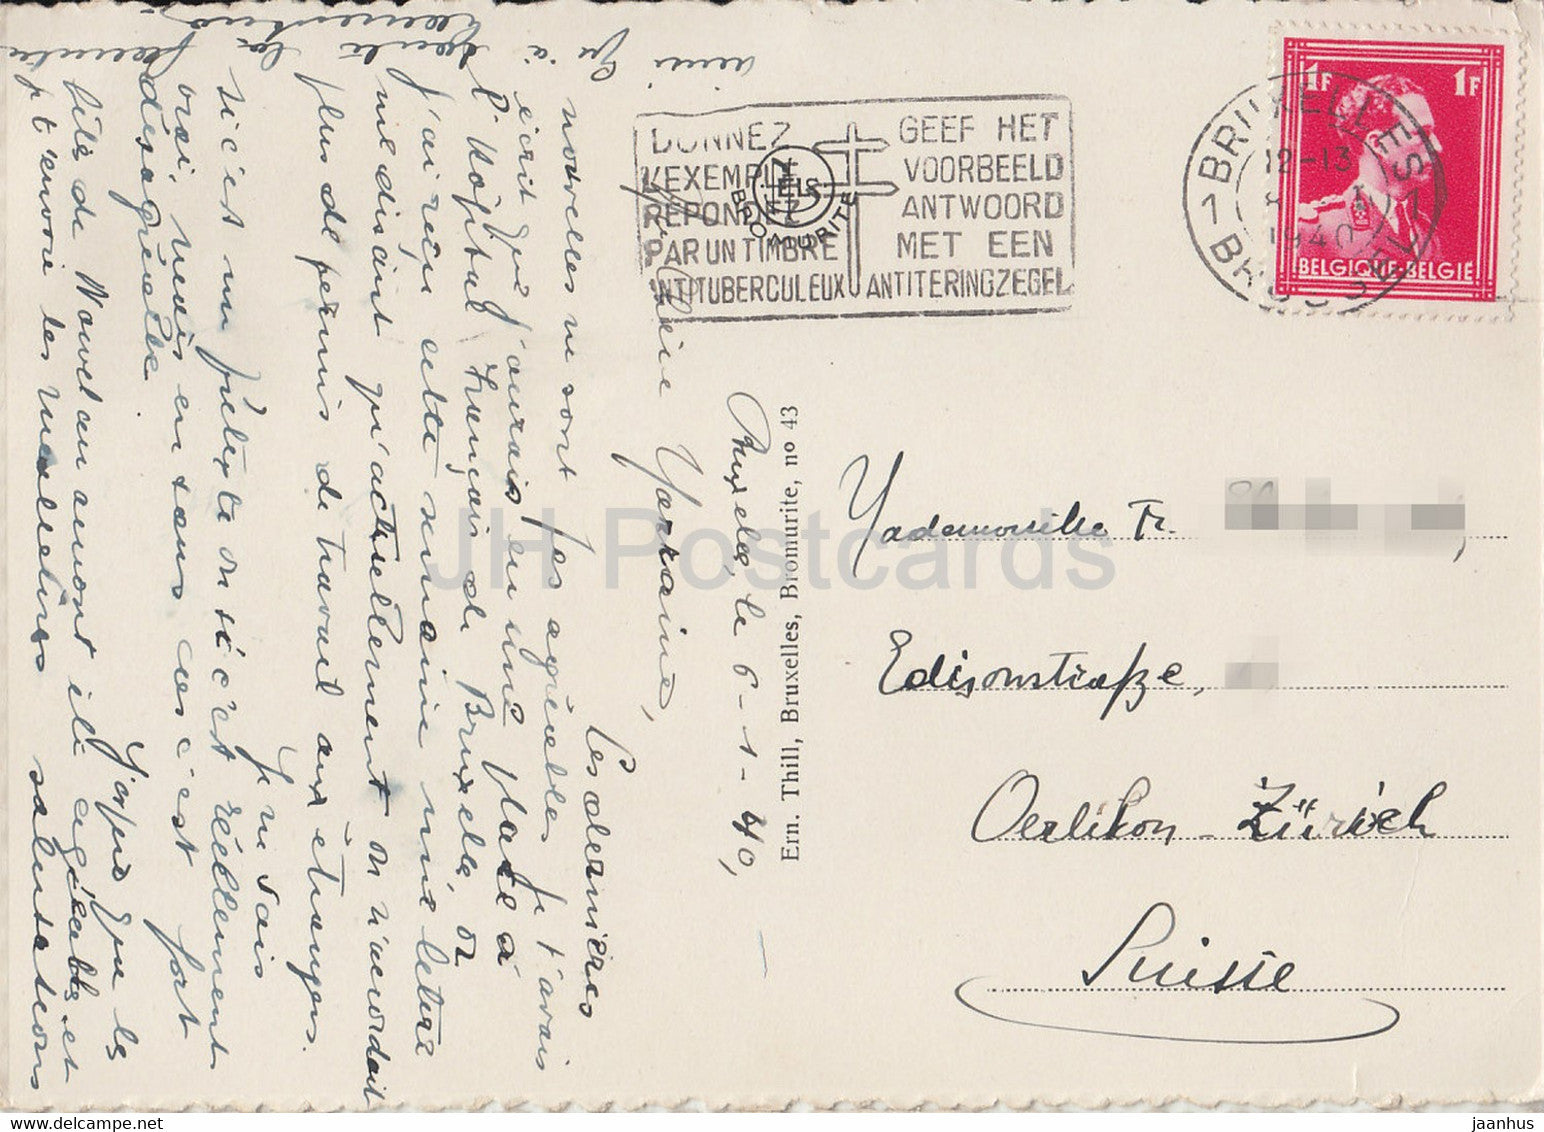 DONNEZ
L'EXEMPLE
REPONDEZ
PAR UN TIMBRE
ANTITUBERCULEUX
GEEF HET
VOORBEELD
ANTWOORD
MET EEN
ANTITERINGZEGEL
ELS
BROMURITE
1F 1F
BELGIQUE-BELGIË
1 BRUXELLES 1
12-13
1940
BRUSSEL
Ern. Thill, Bruxelles, Bromurite, nº 43
Bruxelles, le 6-1-40,
Chère Marraine,
Les dernières
nouvelles ne sont pas agréables. Je t'avais
écrit que j'aurais eu une place à
l'hôpital français de Bruxelles, or
j'ai reçu cette semaine une lettre
me disant qu'actuellement on n'accordait
plus de permis de travail aux étrangers.
Je ne sais
si c'est un prétexte ou si c'est réellement
vrai, mais en tous cas c'est fort
désagréable.
J'espère que les
fêtes de Nouvel an auront été agréables et
t'envoie les meilleures salutations
ainsi qu'à
toute la famille
Mademoiselle Fr.
Edisonstraße,
Oerlikon-Zürich
Suisse
JH Postcards
jaanhus @ delcampe.net